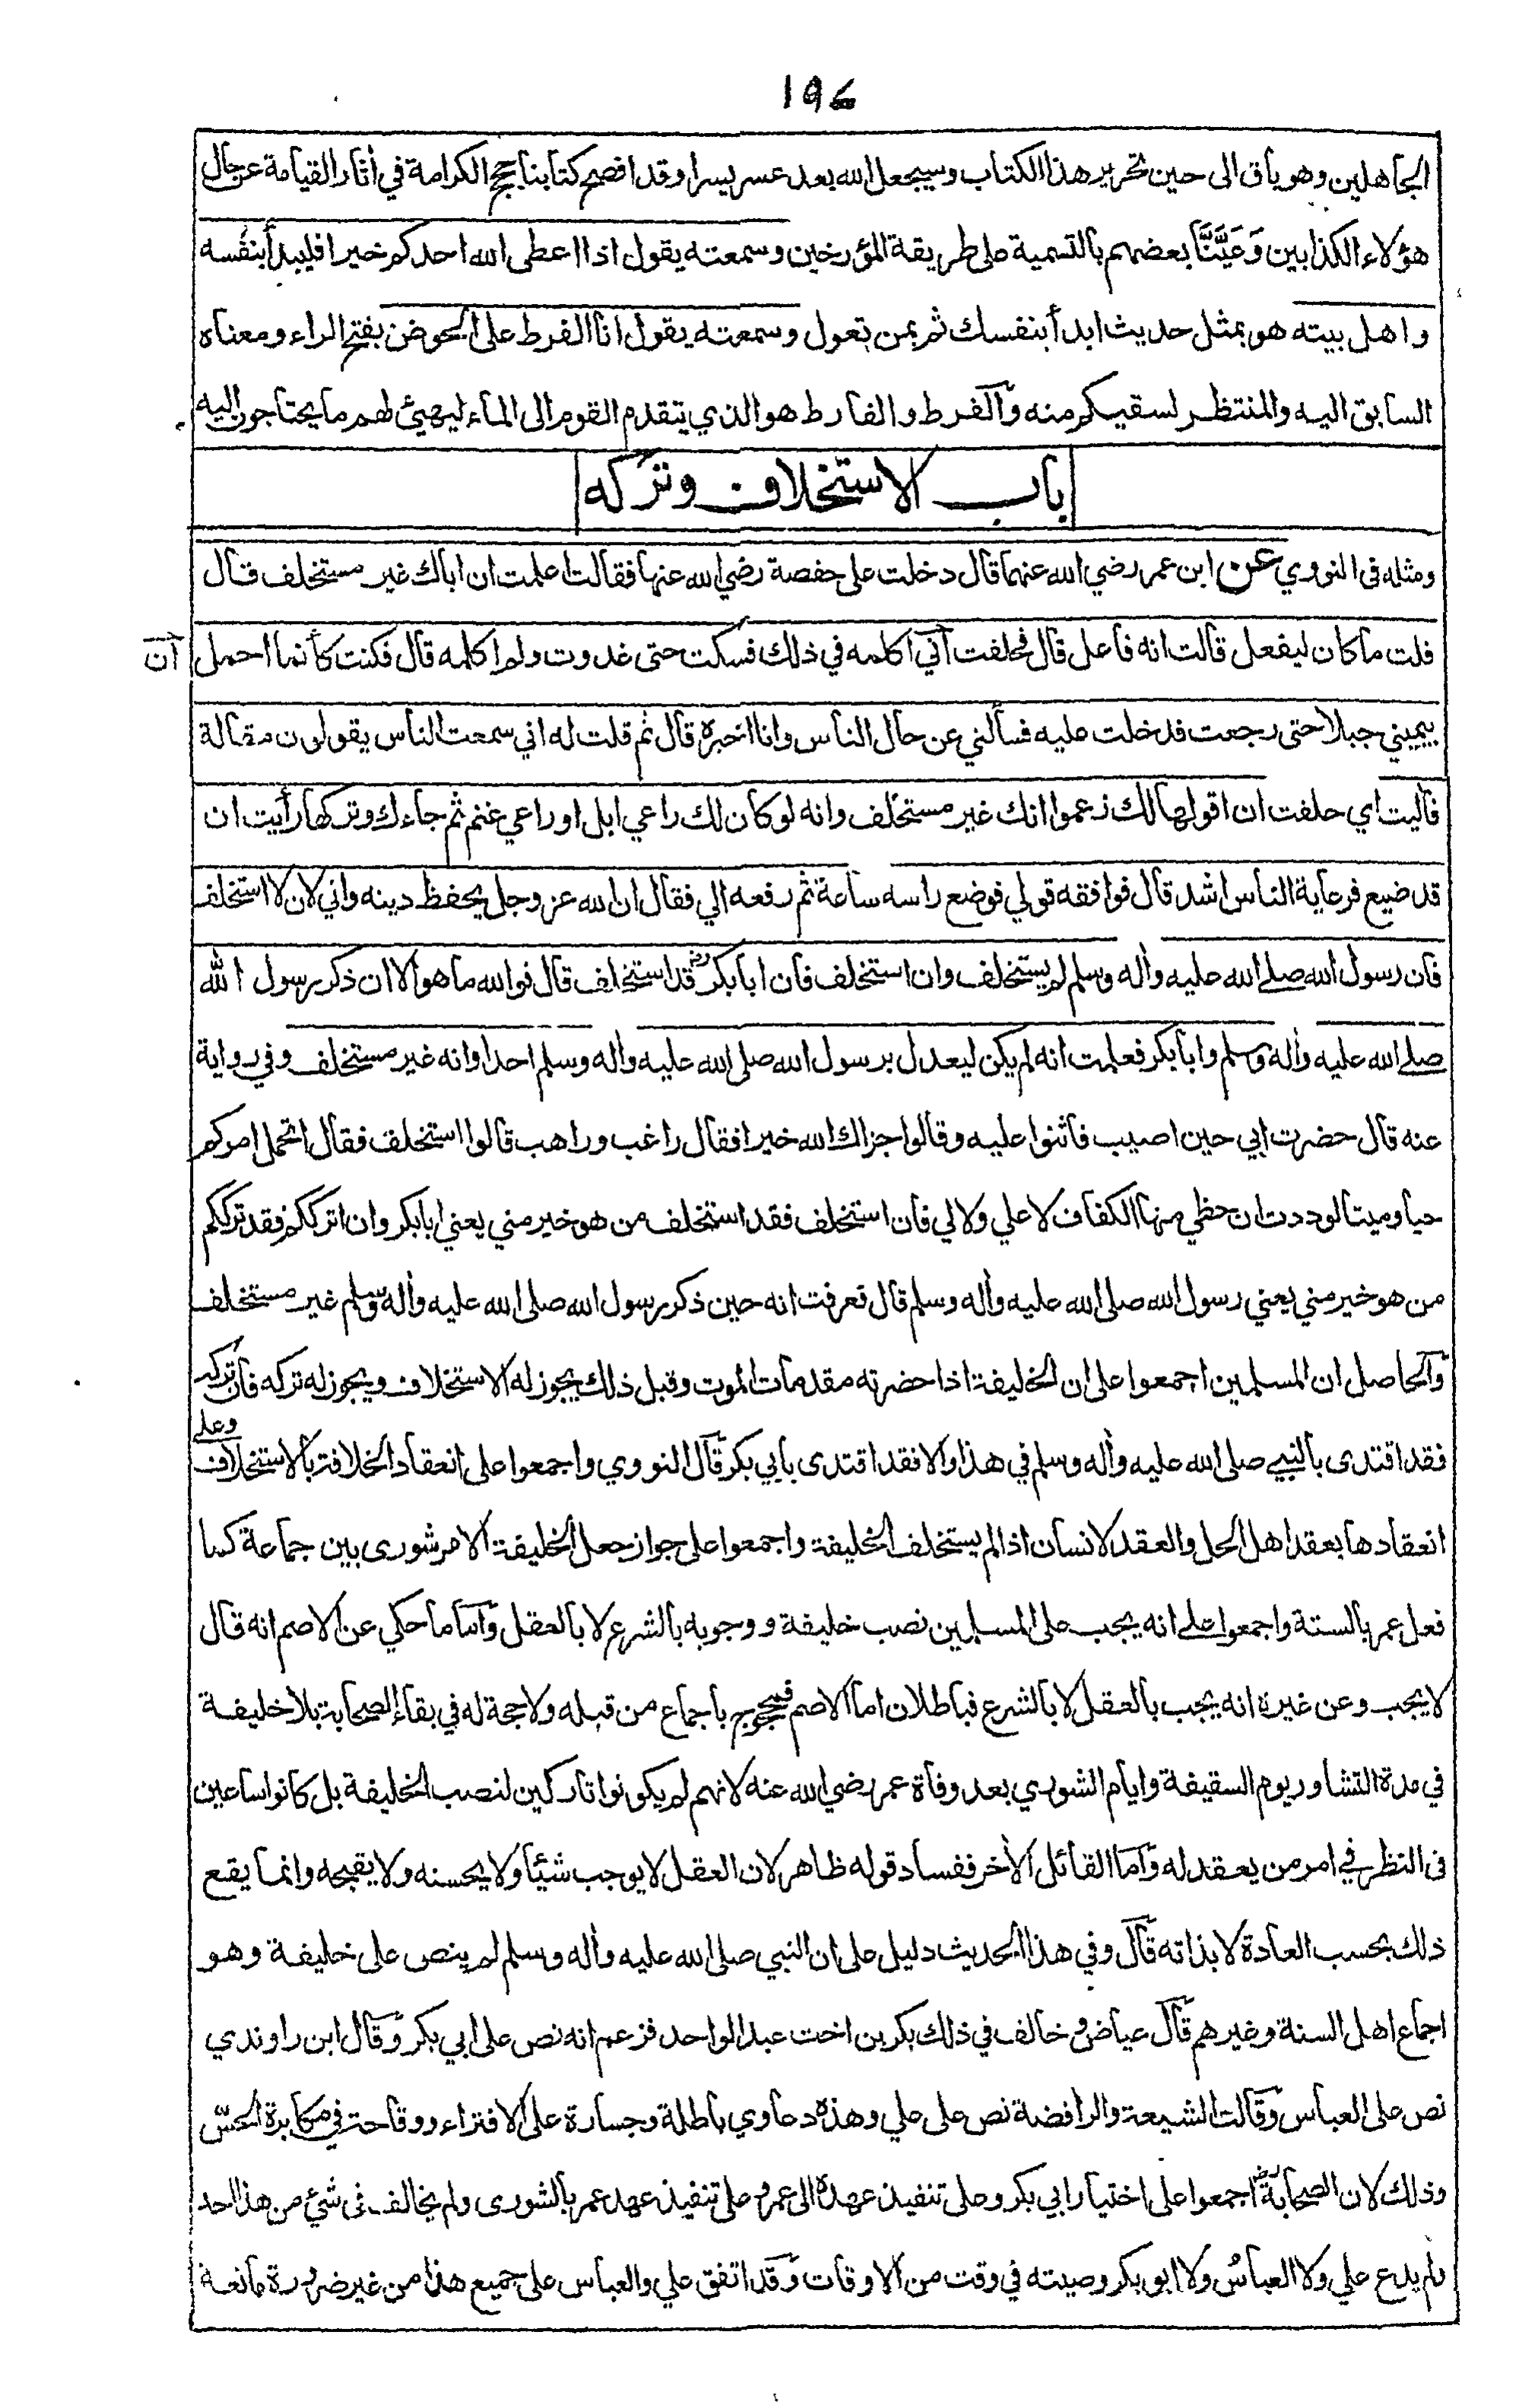 ۱۹۶
الجاهلين وهو باق الى حين تحرير هذا الكتاب وسيجعل الله بعد عسر يسرا وقد افصح كتابنا حجج الكرامة في أثار القيامة عن حال
هؤلاء الكذابين وَعَيَّنَّا بعضهم بالتسمية على طريقة المؤرخين وسمعته يقول اذا اعطى الله احدكم خيرا فليبدأ بنفسه
واهل بيته هو بمثل حديث ابدأ بنفسك ثم بمن تعول وسمعته يقول انا الفرط على الحوض بفتح الراء ومعناه
السابق اليه والمنتظر لسقيكم منه والفرط والفارط هو الذي يتقدم القوم الى الماء ليهيئ لهم ما يحتاجون اليه
باب الاستخلاف وتركه
ومثله في النووي عن ابن عمر رضي الله عنهما قال دخلت على حفصة رضي الله عنها فقالت اعلمت ان اباك غير مستخلف قال
قلت ما كان ليفعل قالت انه فاعل قال فحلفت أني اكلمه في ذلك فسكت حتى غدوت ولم اكلمه قال فكنت كأنما احمل أن
بيميني جبلا حتى رجعت فدخلت عليه فسألني عن حال الناس وانا اخبره قال ثم قلت له اني سمعت الناس يقولون مقالة
فأليت اي حلفت ان اقولها لك زعموا انك غير مستخلف وانه لو كان لك راعي ابل او راعي غنم ثم جاءك وتركها رأيت ان
قد ضيع فرعاية الناس اشد قال فوافقه قولي فوضع راسه ساعة ثم رفعه الي فقال ان الله عز وجل يحفظ دينه واني لان لا استخلف
فان رسول الله صلى الله عليه وأله وسلم لم يستخلف وان استخلف فان ابا بكر رض قد استخلف قال فوالله ما هو الا ان ذكر رسول الله
صلى الله عليه وأله وسلم وابا بكر فعلمت انه لم يكن ليعدل برسول الله صلى الله عليه وأله وسلم احدا وانه غير مستخلف وفي رواية
عنه قال حضرت ابي حين اصيب فأثنوا عليه وقالوا جزاك الله خيرا فقال راغب وراهب قالوا استخلف فقال اتحمل امركم
حيا وميتا لوددت ان حظي منها الكفاف لا علي ولا لي فان استخلف فقد استخلف من هو خير مني يعني ابا بكر وان اترككم فقد ترككم
من هو خير مني يعني رسول الله صلى الله عليه وأله وسلم قال فعرفت انه حين ذكر رسول الله صلى الله عليه وأله وسلم غير مستخلف
والحاصل ان المسلمين اجمعوا على ان الخليفة اذا حضرته مقدمات الموت وقبل ذلك يجوز له الاستخلاف ويجوز له تركه فان تركه
فقد اقتدى بالنبي صلى الله عليه وأله وسلم في هذا والا فقد اقتدى بابي بكر قال النووي واجمعوا على انعقاد الخلافة بالاستخلاف وعلى
انعقادها بعقد اهل الحل والعقد لانسان اذا لم يستخلف الخليفة واجمعوا على جواز جعل الخليفة الامر شورى بين جماعة كما
فعل عمر بالستة واجمعوا على انه يجب على المسلمين نصب خليفة ووجوبه بالشرع لا بالعقل واما ما حكي عن الاصم انه قال
لا يجب وعن غيره انه يجب بالعقل لا بالشرع فباطلان اما الاصم فمحجوج باجماع من قبله ولا حجة له في بقاء الصحابة بلا خليفة
في مدة التشاور يوم السقيفة وايام الشورى بعد وفاة عمر رضي الله عنه لانهم لم يكونوا تاركين لنصب الخليفة بل كانوا ساعين
في النظر في امر من يعقد له واما القائل الأخر ففساد قوله ظاهر لان العقل لا يوجب شيئا ولا يحسنه ولا يقبحه وانما يقع
ذلك بحسب العادة لا بذاته قال وفي هذا الحديث دليل على ان النبي صلى الله عليه وأله وسلم لم ينص على خليفة وهو
اجماع اهل السنة وغيرهم قال عياض وخالف في ذلك بكر بن اخت عبد الواحد فزعم انه نص على ابي بكر وقال ابن راوندي
نص على العباس وقالت الشيعة والرافضة نص على علي وهذه دعاوي باطلة وجسارة على الافتراء ووقاحة في مكابرة الحسّ
وذلك لان الصحابة رض اجمعوا على اختيار ابي بكر وعلى تنفيذ عهده الى عمر وعلى تنفيذ عهد عمر بالشورى ولم يخالف في شيء من هذا احد
ولم يدع علي ولا العباس ولا ابو بكر وصيته في وقت من الاوقات وقد اتفق علي والعباس على جميع هذا من غير ضرورة مانعة